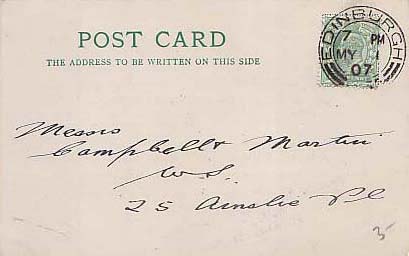 POST CARD
THE ADDRESS TO BE WRITTEN ON THIS SIDE
EDINBURGH
7 PM
MY 1
07
Messrs
Campbell & Martin
W.S.
25 Ainslie Pl
5